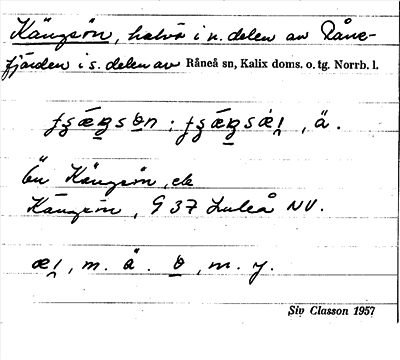 Kängsön, halvö i n. delen av Råne-
fjärden i s. delen av Råneå sn, Kalix doms. o. tg. Norrb. l.
, ä.
Ön Kängsön, ek
Kängsön, 937 Luleå NV.
, m. ä. , m. y.
Siv Classon 1957